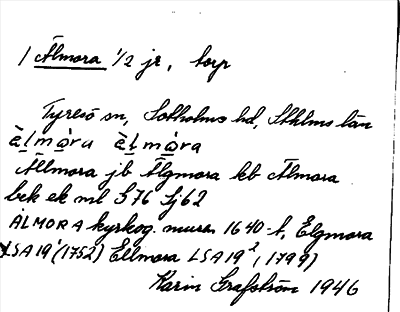 1 Älmora 1/2 jr, torp
Tyresö sn, Sotholms hd, Sthlms län
è̱lmò̱ra è̱lmó̱ra
Ällmora jb Älgmora kb Älmora
bek ek ml S76 Sj62
ÄLMORA kyrkog. muren 1640-t, Elgmora
LSA19¹(1752) Ellmora LSA19², 1799)
Karin Grafström 1946